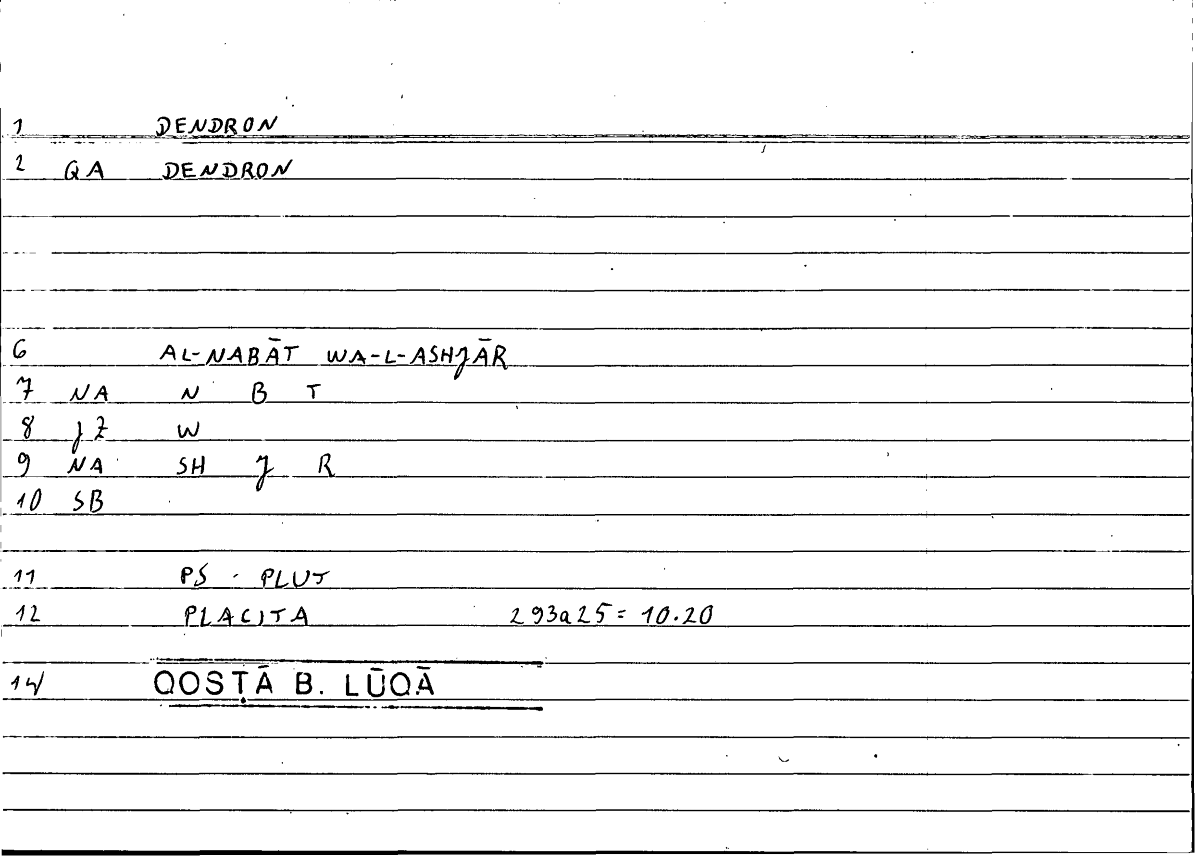 1 DENDRON
2 QA DENDRON
6 AL-NABĀT WA-L-ASHJĀR
7 NA N B T
8 JZ W
9 NA SH J R
10 SB
11 PS. PLUT
12 PLACITA 293a25 = 10.20
14 QOSṬĀ B. LŪQĀ